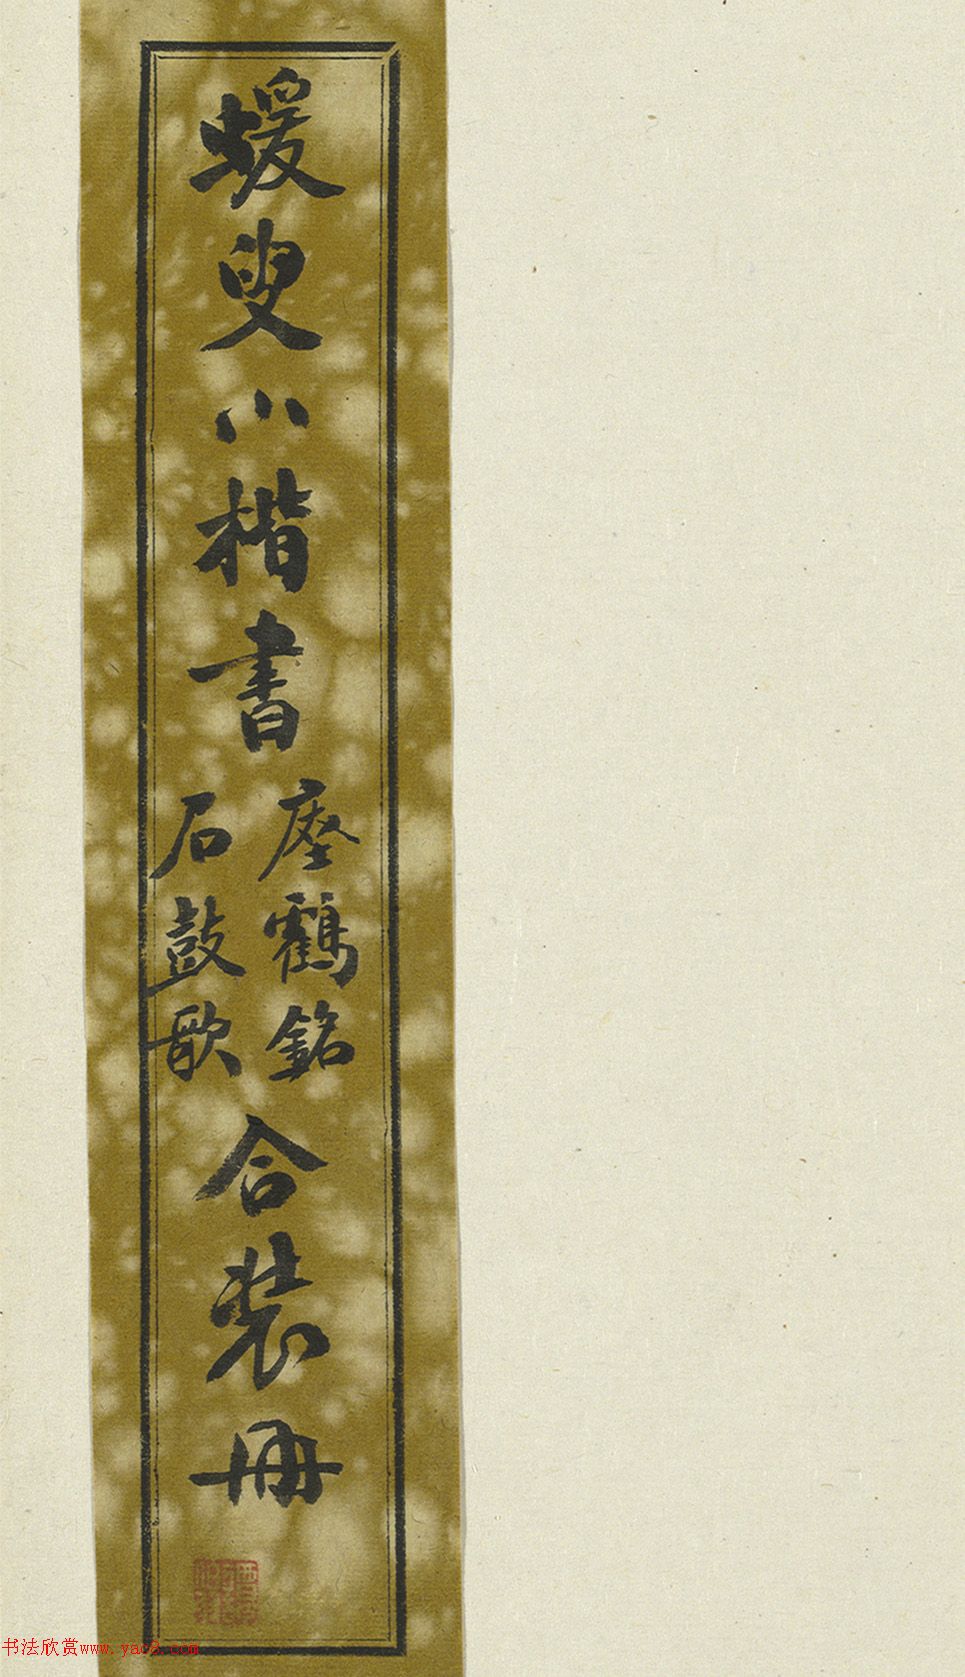 蝯叟小楷書
瘞鶴銘
石鼓歌
合裝冊
书法欣赏www.yac8.com